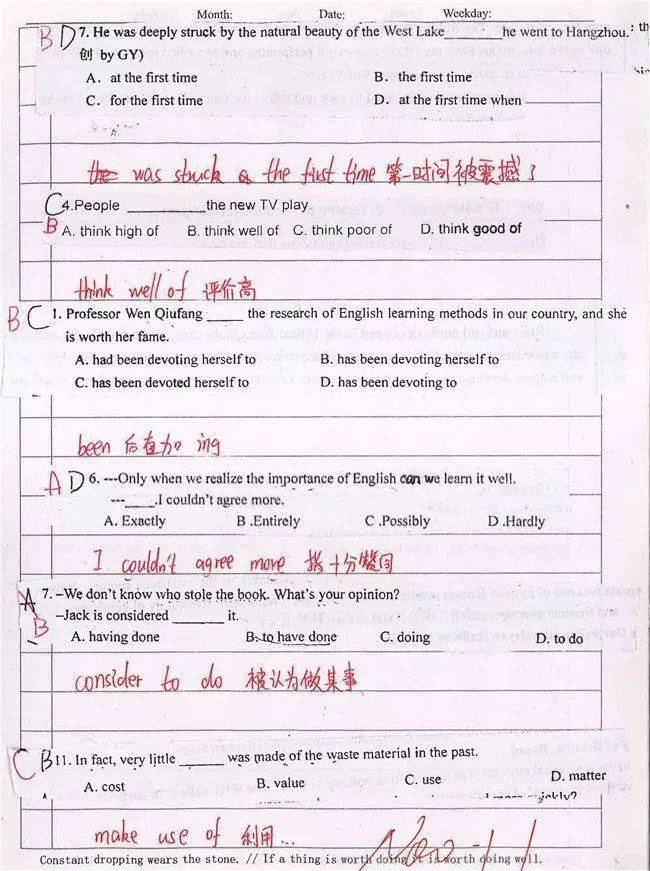 Month: Date: Weekday:
B D 7. He was deeply struck by the natural beauty of the West Lake ______ he went to Hangzhou.
创 by GY)
A. at the first time B. the first time
C. for the first time D. at the first time when
was struck the first time 第一时间被震撼了
C 4.People ______ the new TV play.
B A. think high of B. think well of C. think poor of D. think good of
think well of 评价高
B C 1. Professor Wen Qiufang _____ the research of English learning methods in our country, and she
is worth her fame.
A. had been devoting herself to B. has been devoting herself to
C. has been devoted herself to D. has been devoting to
been 后直加 ing
A D 6. ---Only when we realize the importance of English can we learn it well.
---_____.I couldn't agree more.
A. Exactly B .Entirely C .Possibly D .Hardly
I couldn't agree more 指十分赞同
A 7. –We don't know who stole the book. What's your opinion?
B –Jack is considered _______ it.
A. having done B. to have done C. doing D. to do
consider to do 被认为做某事
C B 11. In fact, very little ______ was made of the waste material in the past.
A. cost B. value C. use D. matter
make use of 利用...
Constant dropping wears the stone. // If a thing is worth doing it is worth doing well.